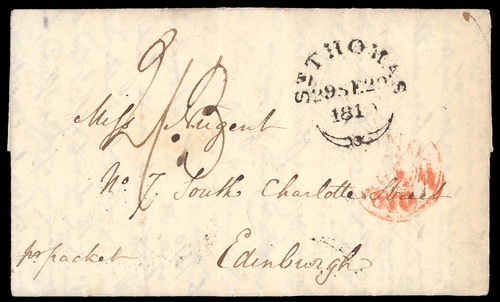 ST THOMAS
181
2/3
Miss Nugent
No 7. South Charlotte Street
pr packet
Edinburgh